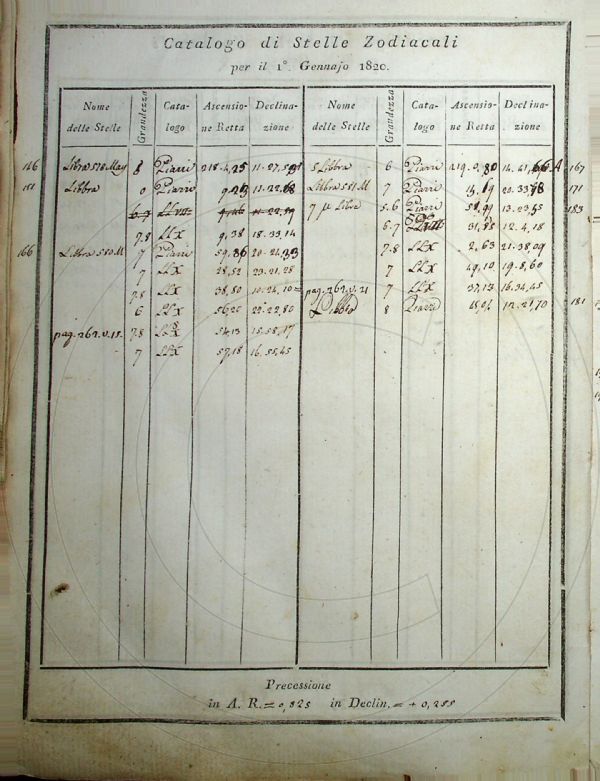 Catalogo di Stelle Zodiacali
per il 1°. Gennajo 1820.
Nome delle Stelle Grandezza Catalogo Ascensione Retta Declinazione Nome delle Stelle Grandezza Catalogo Ascensione Retta Declinazione
146 Libra 578 May 8 Piazzi 218.4,25 11.27.59 5 Libbra 6 Piazzi 219.0,80 14.41,66 A 167
151 Libbra 0 Piazzi 9,23 11.22.18 Libbra 581 M 7 Piazzi 20.33,78 171
6.7 11.22,19 7 μ Libra 5.6 Piazzi 13.23,55 183
7.8 LLX 9,38 18.33,14 6.7 31,85 12.4,18
166 Libbra 580 M 7 Piazzi 59,36 20.24,33 7.8 LLX 2,63 21.38,09
7 LLX 28,52 23.21,28 7 LLX 49,10 19.8,60
7.8 LLX 38,80 10.24,10 pag. 262.v.21 7 LLX 37,13 16.34,45
6 LLX 56,25 22.22,80 Libbra 8 Piazzi 12.21,70 181
pag. 262.v.15. 7.8 LLX 54,13 15.58,17
7 LLX 57,18 16.55,45
Precessione
in A. R. = 0,825 in Declin. = + 0,255